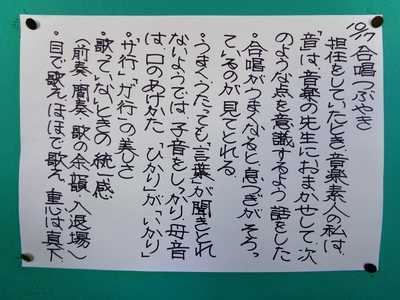 10/17 合唱つぶやき
担任をしていたとき、音楽素人の私は、
「音は、音楽の先生におまかせして、次
のような点を意識するよう話をした
・合唱がうまくなると、息つぎがそろっ
ているのが見てとれる。
・うまくうたっても、言葉が聞きとれ
ないようでは、子音をしっかり、母音
は、口のあけかた 「ひかり」が「いかり」
・「サ行」「ガ行」の美しさ
・歌っていないときの統一感
〈前奏、間奏、歌の余韻、入退場〉
・目で歌え、ほほで歌え、重心は真下